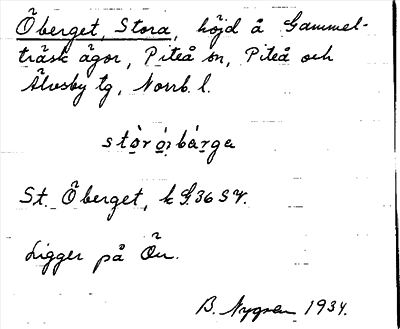 Öberget, Stora, höjd å Gammel-
träsk ägor, Piteå sn, Piteå och
Älvsby tg, Norrb. l.
stòr ö́ɩ bàrga
St. Öberget, k G.36 SV.
Ligger på Ön.
B. Nygren 1934.